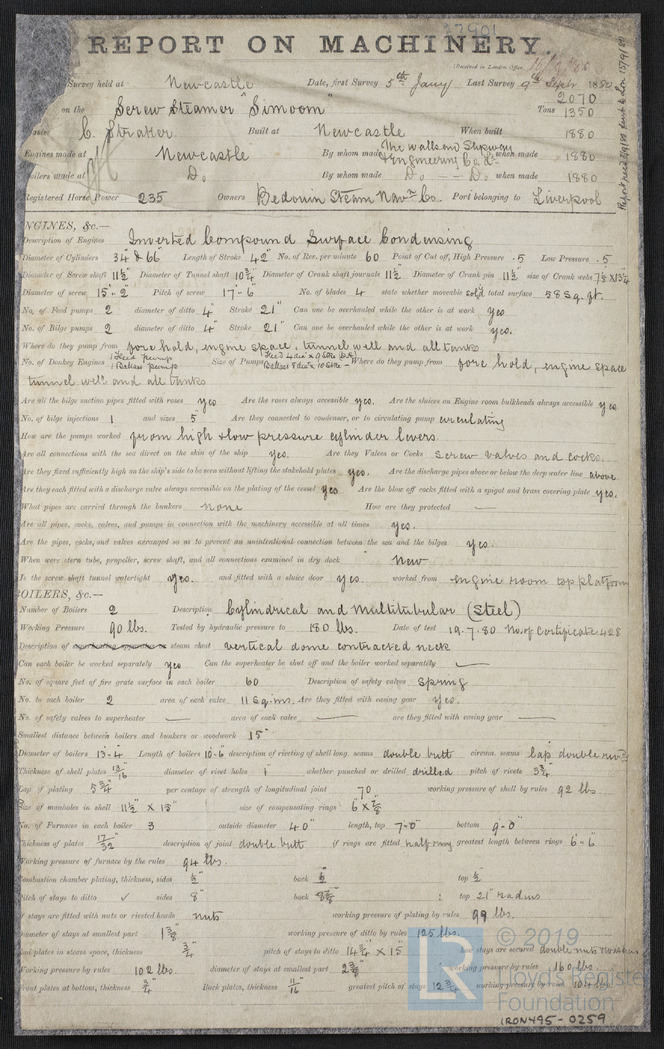 37901
REPORT ON MACHINERY.
(Received in London Office
Survey held at Newcastle Date, first Survey 5th Jany Last Survey 9th Sept 1880
on the Screw Steamer "Simoom" Tons 2070 1350
C. Straker Built at Newcastle When built 1880
Engines made at Newcastle By whom made The Wallsend Slipway Engineering Co Ld when made 1880
Boilers made at Do By whom made Do — Do when made 1880
Registered Horse Power 235 Owners Bedouin Steam Navn Co. Port belonging to Liverpool
ENGINES, &c.—
Description of Engines Inverted Compound Surface Condensing
Diameter of Cylinders 34 & 66" Length of Stroke 42" No. of Rev. per minute 60 Point of Cut off, High Pressure .5 Low Pressure .5
Diameter of Screw shaft 11½" Diameter of Tunnel shaft 10¾" Diameter of Crank shaft journals 11½" Diameter of Crank pin 11½" size of Crank webs 7½ X 13¼
Diameter of screw 15'-2" Pitch of screw 17'-6" No. of blades 4 state whether moveable solid total surface 58 sq. ft.
No. of Feed pumps 2 diameter of ditto 4" Stroke 21" Can one be overhauled while the other is at work yes
No. of Bilge pumps 2 diameter of ditto 4" Stroke 21" Can one be overhauled while the other is at work yes.
Where do they pump from fore hold, engine space, tunnel well and all tanks
No. of Donkey Engines 1 Feed pump 1 Ballast pump Size of Pumps Where do they pump from fore hold, engine space
tunnel well and all tanks
Are all the bilge suction pipes fitted with roses yes Are the roses always accessible yes. Are the sluices on Engine room bulkheads always accessible yes
No. of bilge injections 1 and sizes 5" Are they connected to condenser, or to circulating pump circulating
How are the pumps worked from high & low pressure cylinder levers.
Are all connections with the sea direct on the skin of the ship yes. Are they Valves or Cocks screw valves and cocks.
Are they fixed sufficiently high on the ship's side to be seen without lifting the stokehold plates yes. Are the discharge pipes above or below the deep water line above
Are they each fitted with a discharge valve always accessible on the plating of the vessel yes Are the blow off cocks fitted with a spigot and brass covering plate yes.
What pipes are carried through the bunkers none How are they protected —
Are all pipes, cocks, valves, and pumps in connection with the machinery accessible at all times yes.
Are the pipes, cocks, and valves arranged so as to prevent an unintentional connection between the sea and the bilges yes.
When were stern tube, propeller, screw shaft, and all connections examined in dry dock New
Is the screw shaft tunnel watertight yes. and fitted with a sluice door yes. worked from engine room top platform
BOILERS, &c.—
Number of Boilers 2 Description Cylindrical and Multitubular (Steel)
Working Pressure 90 lbs. Tested by hydraulic pressure to 180 lbs. Date of test 19.7.80 No. of Certificate 428
Description of steam chest vertical dome contracted neck
Can each boiler be worked separately yes Can the superheater be shut off and the boiler worked separately —
No. of square feet of fire grate surface in each boiler 60 Description of safety valves Spring
No. to each boiler 2 area of each valve 11 sq. ins. Are they fitted with easing gear yes.
No. of safety valves to superheater — area of each valve — are they fitted with easing gear —
Smallest distance between boilers and bunkers or woodwork 15"
Diameter of boilers 13'-4" Length of boilers 10'-6" description of riveting of shell long. seams double butt circum. seams lap double
Thickness of shell plates 13/16" diameter of rivet holes 1" whether punched or drilled drilled pitch of rivets 3¾"
Lap of plating 5¾" per centage of strength of longitudinal joint 70 working pressure of shell by rules 92 lbs.
Size of manholes in shell 11½" X 15" size of compensating rings 6" X 7/8"
No. of Furnaces in each boiler 3 outside diameter 40" length, top 7'-0" bottom 9'-0"
Thickness of plates 17/32" description of joint double butt if rings are fitted half ring greatest length between rings 6'-6"
Working pressure of furnace by the rules 94 lbs.
Combustion chamber plating, thickness, sides ½" back ½ top ½
Pitch of stays to ditto ✓ sides 8" back 8½" top 21" radius
If stays are fitted with nuts or riveted heads nuts working pressure of plating by rules 99 lbs.
Diameter of stays at smallest part 1⅜" working pressure of ditto by rules 125 lbs.
End plates in steam space, thickness ¾" pitch of stays to ditto 14¾" X 15" how stays are secured double nuts & washers
Working pressure by rules 102 lbs. diameter of stays at smallest part 2⅜" working pressure by rules 160 lbs
Front plates at bottom, thickness ¾" Back plates, thickness 11/16" greatest pitch of stays 12¾ working pressure by rules 104 lbs
LR
© 2019
Lloyd's Register
Foundation
IRON495-0259